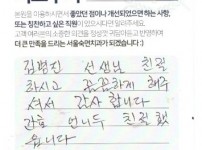 본원을 이용하시면서 좋았던 점이나 개선되었으면 하는 사항,
또는 칭찬하고 싶은 직원이 있으시다면 말씀해주세요.
고객 여러분의 소중한 의견을 적극 반영하여
더 큰 만족을 드리는 서울숙면치과가 되겠습니다 :)
김병진 선생님 친절
하시고 꼼꼼하게 해주
셔서 감사합니다
간호 언니두 친절했
읍니다